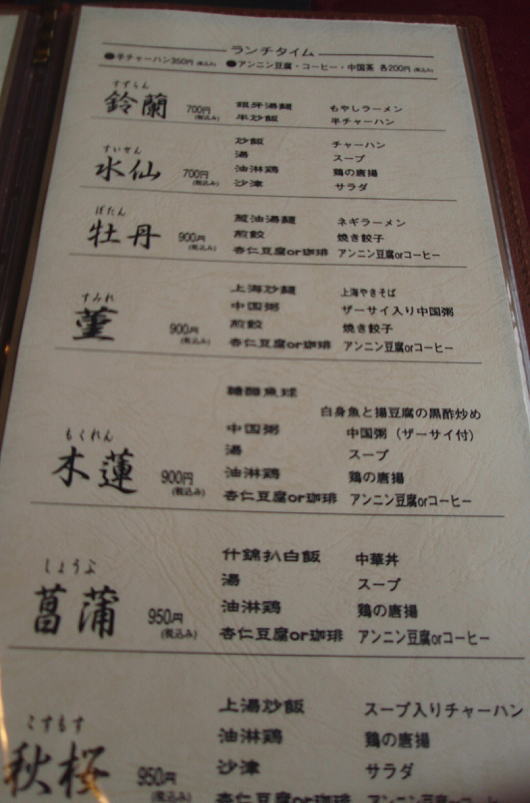 ランチタイム
●半チャーハン350円(税込み) ●アンニン豆腐・コーヒー・中国茶 各200円(税込み)
すずらん
鈴蘭 700円(税込み)
銀芽湯麺 もやしラーメン
半炒飯 半チャーハン
すいせん
水仙 700円(税込み)
炒飯 チャーハン
湯 スープ
油淋鶏 鶏の唐揚
沙津 サラダ
ぼたん
牡丹 900円(税込み)
葱油湯麺 ネギラーメン
煎餃 焼き餃子
杏仁豆腐or珈琲 アンニン豆腐orコーヒー
すみれ
菫 900円(税込み)
上海炒麺 上海やきそば
中国粥 ザーサイ入り中国粥
煎餃 焼き餃子
杏仁豆腐or珈琲 アンニン豆腐orコーヒー
もくれん
木蓮 900円(税込み)
白身魚と揚豆腐の黒酢炒め
中国粥 中国粥(ザーサイ付)
湯 スープ
油淋鶏 鶏の唐揚
杏仁豆腐or珈琲 アンニン豆腐orコーヒー
しょうぶ
菖蒲 950円(税込み)
什錦扒白飯 中華丼
湯 スープ
油淋鶏 鶏の唐揚
杏仁豆腐or珈琲 アンニン豆腐orコーヒー
こすもす
秋桜 950円(税込み)
上湯炒飯 スープ入りチャーハン
油淋鶏 鶏の唐揚
沙津 サラダ
杏仁豆腐or珈琲 アンニン豆腐orコーヒー